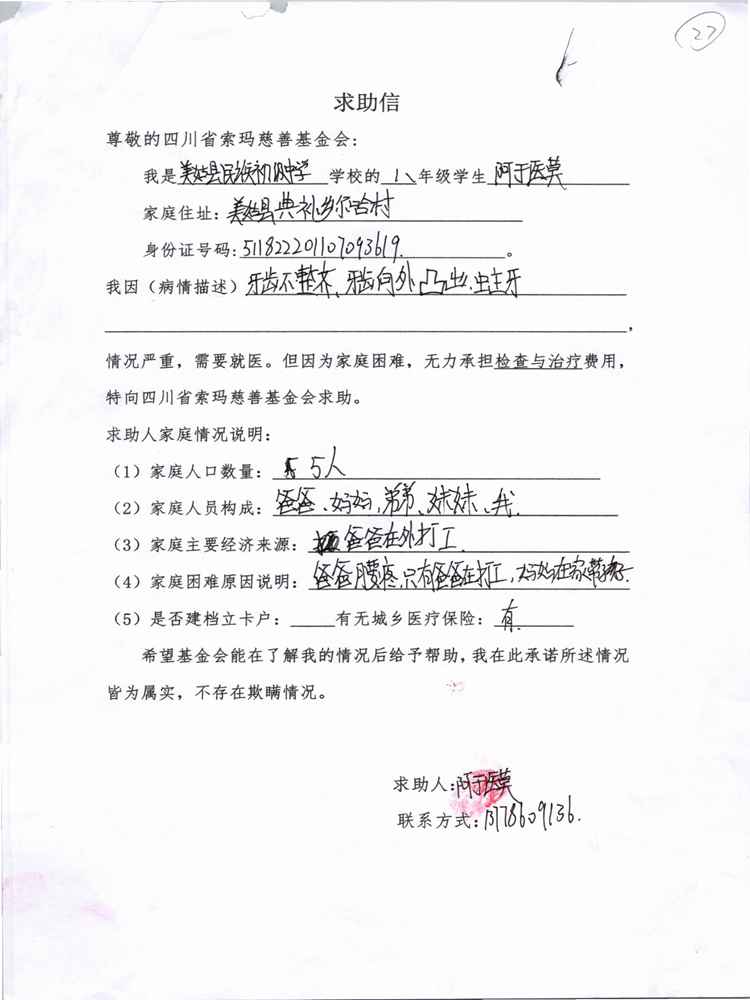 27
求助信
尊敬的四川省索玛慈善基金会：
我是美姑县民族初级中学 学校的 八年级学生 阿于医莫
家庭住址：美姑县典补乡尔合村
身份证号码：511822201107093619. 。
我因（病情描述）牙齿不整齐、牙齿向外凸出.虫主牙
，
情况严重，需要就医。但因为家庭困难，无力承担检查与治疗费用，
特向四川省索玛慈善基金会求助。
求助人家庭情况说明：
（1）家庭人口数量： 5人
（2）家庭人员构成：爸爸、妈妈，弟弟、妹妹、我.
（3）家庭主要经济来源： 爸爸在外打工
（4）家庭困难原因说明：爸爸腰疼，只有爸爸在打工，妈妈在家带
（5）是否建档立卡户： 有无城乡医疗保险：有.
希望基金会能在了解我的情况后给予帮助，我在此承诺所述情况
皆为属实，不存在欺瞒情况。
求助人：阿于医莫
联系方式：13778609136.